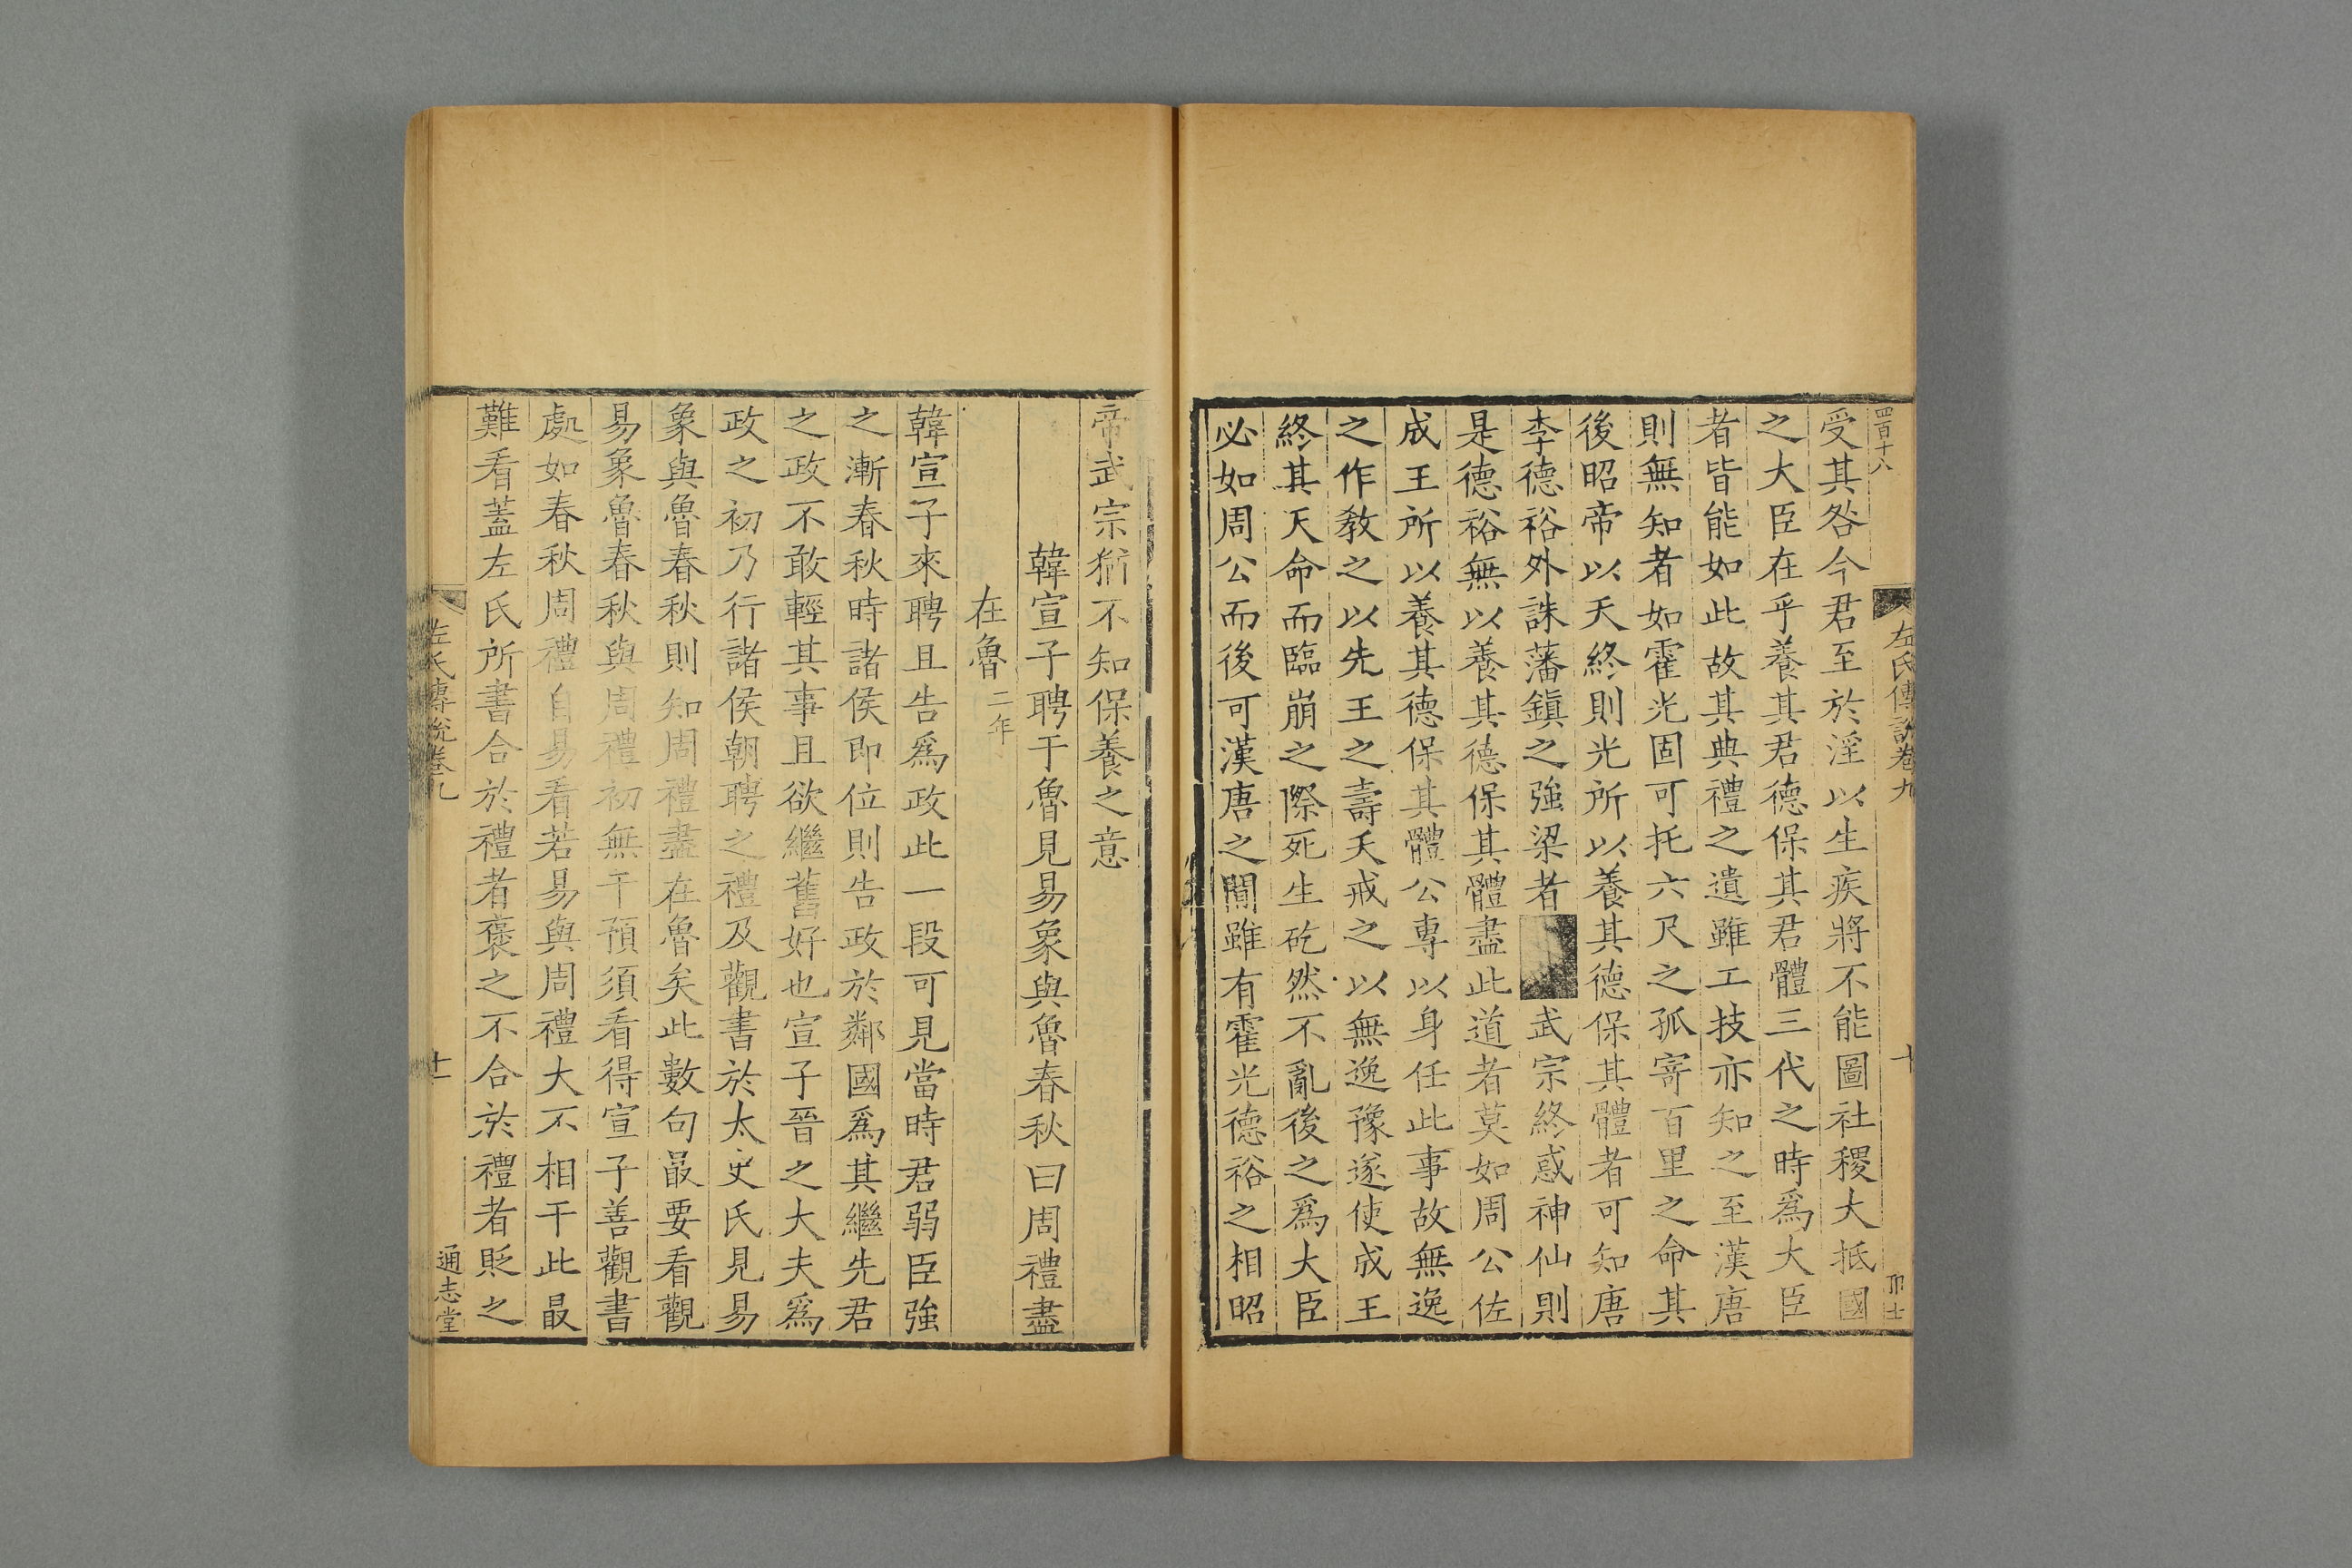 四百十八
左氏傳說卷九
十
受其咎今君至於淫以生疾將不能圖社稷大抵國
之大臣在乎養其君德保其君體三代之時爲大臣
者皆能如此故其典禮之遺雖工技亦知之至漢唐
則無知者如霍光固可托六尺之孤寄百里之命其
後昭帝以夭終則光所以養其德保其體者可知唐
李德裕外誅藩鎮之強梁者武宗終惑神仙則
是德裕無以養其德保其體盡此道者莫如周公佐
成王所以養其德保其體公專以身任此事故無逸
之作教之以先王之壽夭戒之以無逸豫遂使成王
終其天命而臨崩之際死生矻然不亂後之爲大臣
必如周公而後可漢唐之間雖有霍光德裕之相昭
帝武宗猶不知保養之意
韓宣子聘于魯見易象與魯春秋曰周禮盡
在魯二年
韓宣子來聘且告爲政此一段可見當時君弱臣強
之漸春秋時諸侯即位則告政於鄰國爲其繼先君
之政不敢輕其事且欲繼舊好也宣子晉之大夫爲
政之初乃行諸侯朝聘之禮及觀書於太史氏見易
象與魯春秋則知周禮盡在魯矣此數句最要看觀
易象魯春秋與周禮初無干預須看得宣子善觀書
處如春秋周禮自易看若易與周禮大不相干此最
難看蓋左氏所書合於禮者褒之不合於禮者貶之
左氏傳說卷九
十一
通志堂